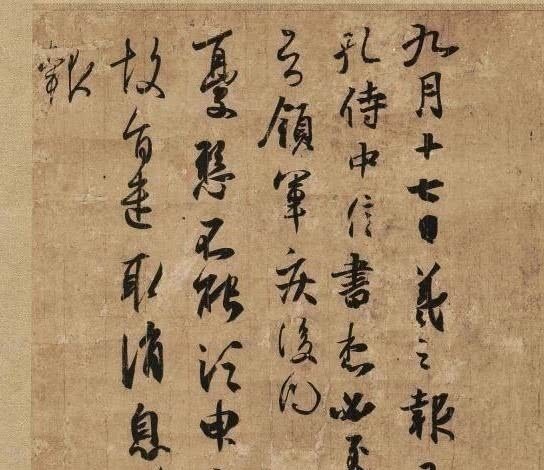 九月十七日羲之報
孔侍中信書想必至
知領軍疾後問
憂懸不能須臾
故旨遣取消息
報